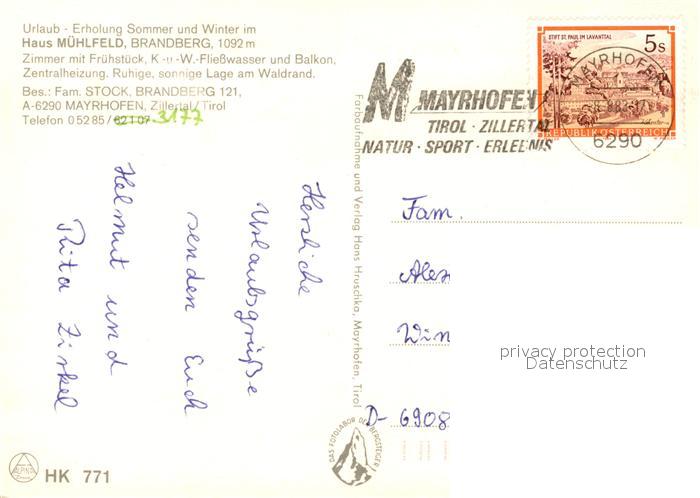 Urlaub - Erholung Sommer und Winter im
Haus MÜHLFELD, BRANDBERG, 1092 m
Zimmer mit Frühstück, K.-u.-W.-Fließwasser und Balkon,
Zentralheizung. Ruhige, sonnige Lage am Waldrand.
Bes.: Fam. STOCK, BRANDBERG 121,
A-6290 MAYRHOFEN, Zillertal/Tirol
Telefon 0 52 85 / 621 07 3177
STIFT ST. PAUL IM LAVANTTAL
5 s
REPUBLIK ÖSTERREICH
MAYRHOFEN
6290
M MAYRHOFEN
TIROL · ZILLERTAL
NATUR · SPORT · ERLEBNIS
Herzliche
Urlaubsgrüße
senden Euch
Helmut und
Rita Zirkel
Farbaufnahme und Verlag Hans Hruschka, Mayrhofen, Tirol
Fam.
Alex
Win
D- 6908
privacy protection
Datenschutz
DAS FOTOLABOR DER BERGSTEIGER
ALPINA
HK 771